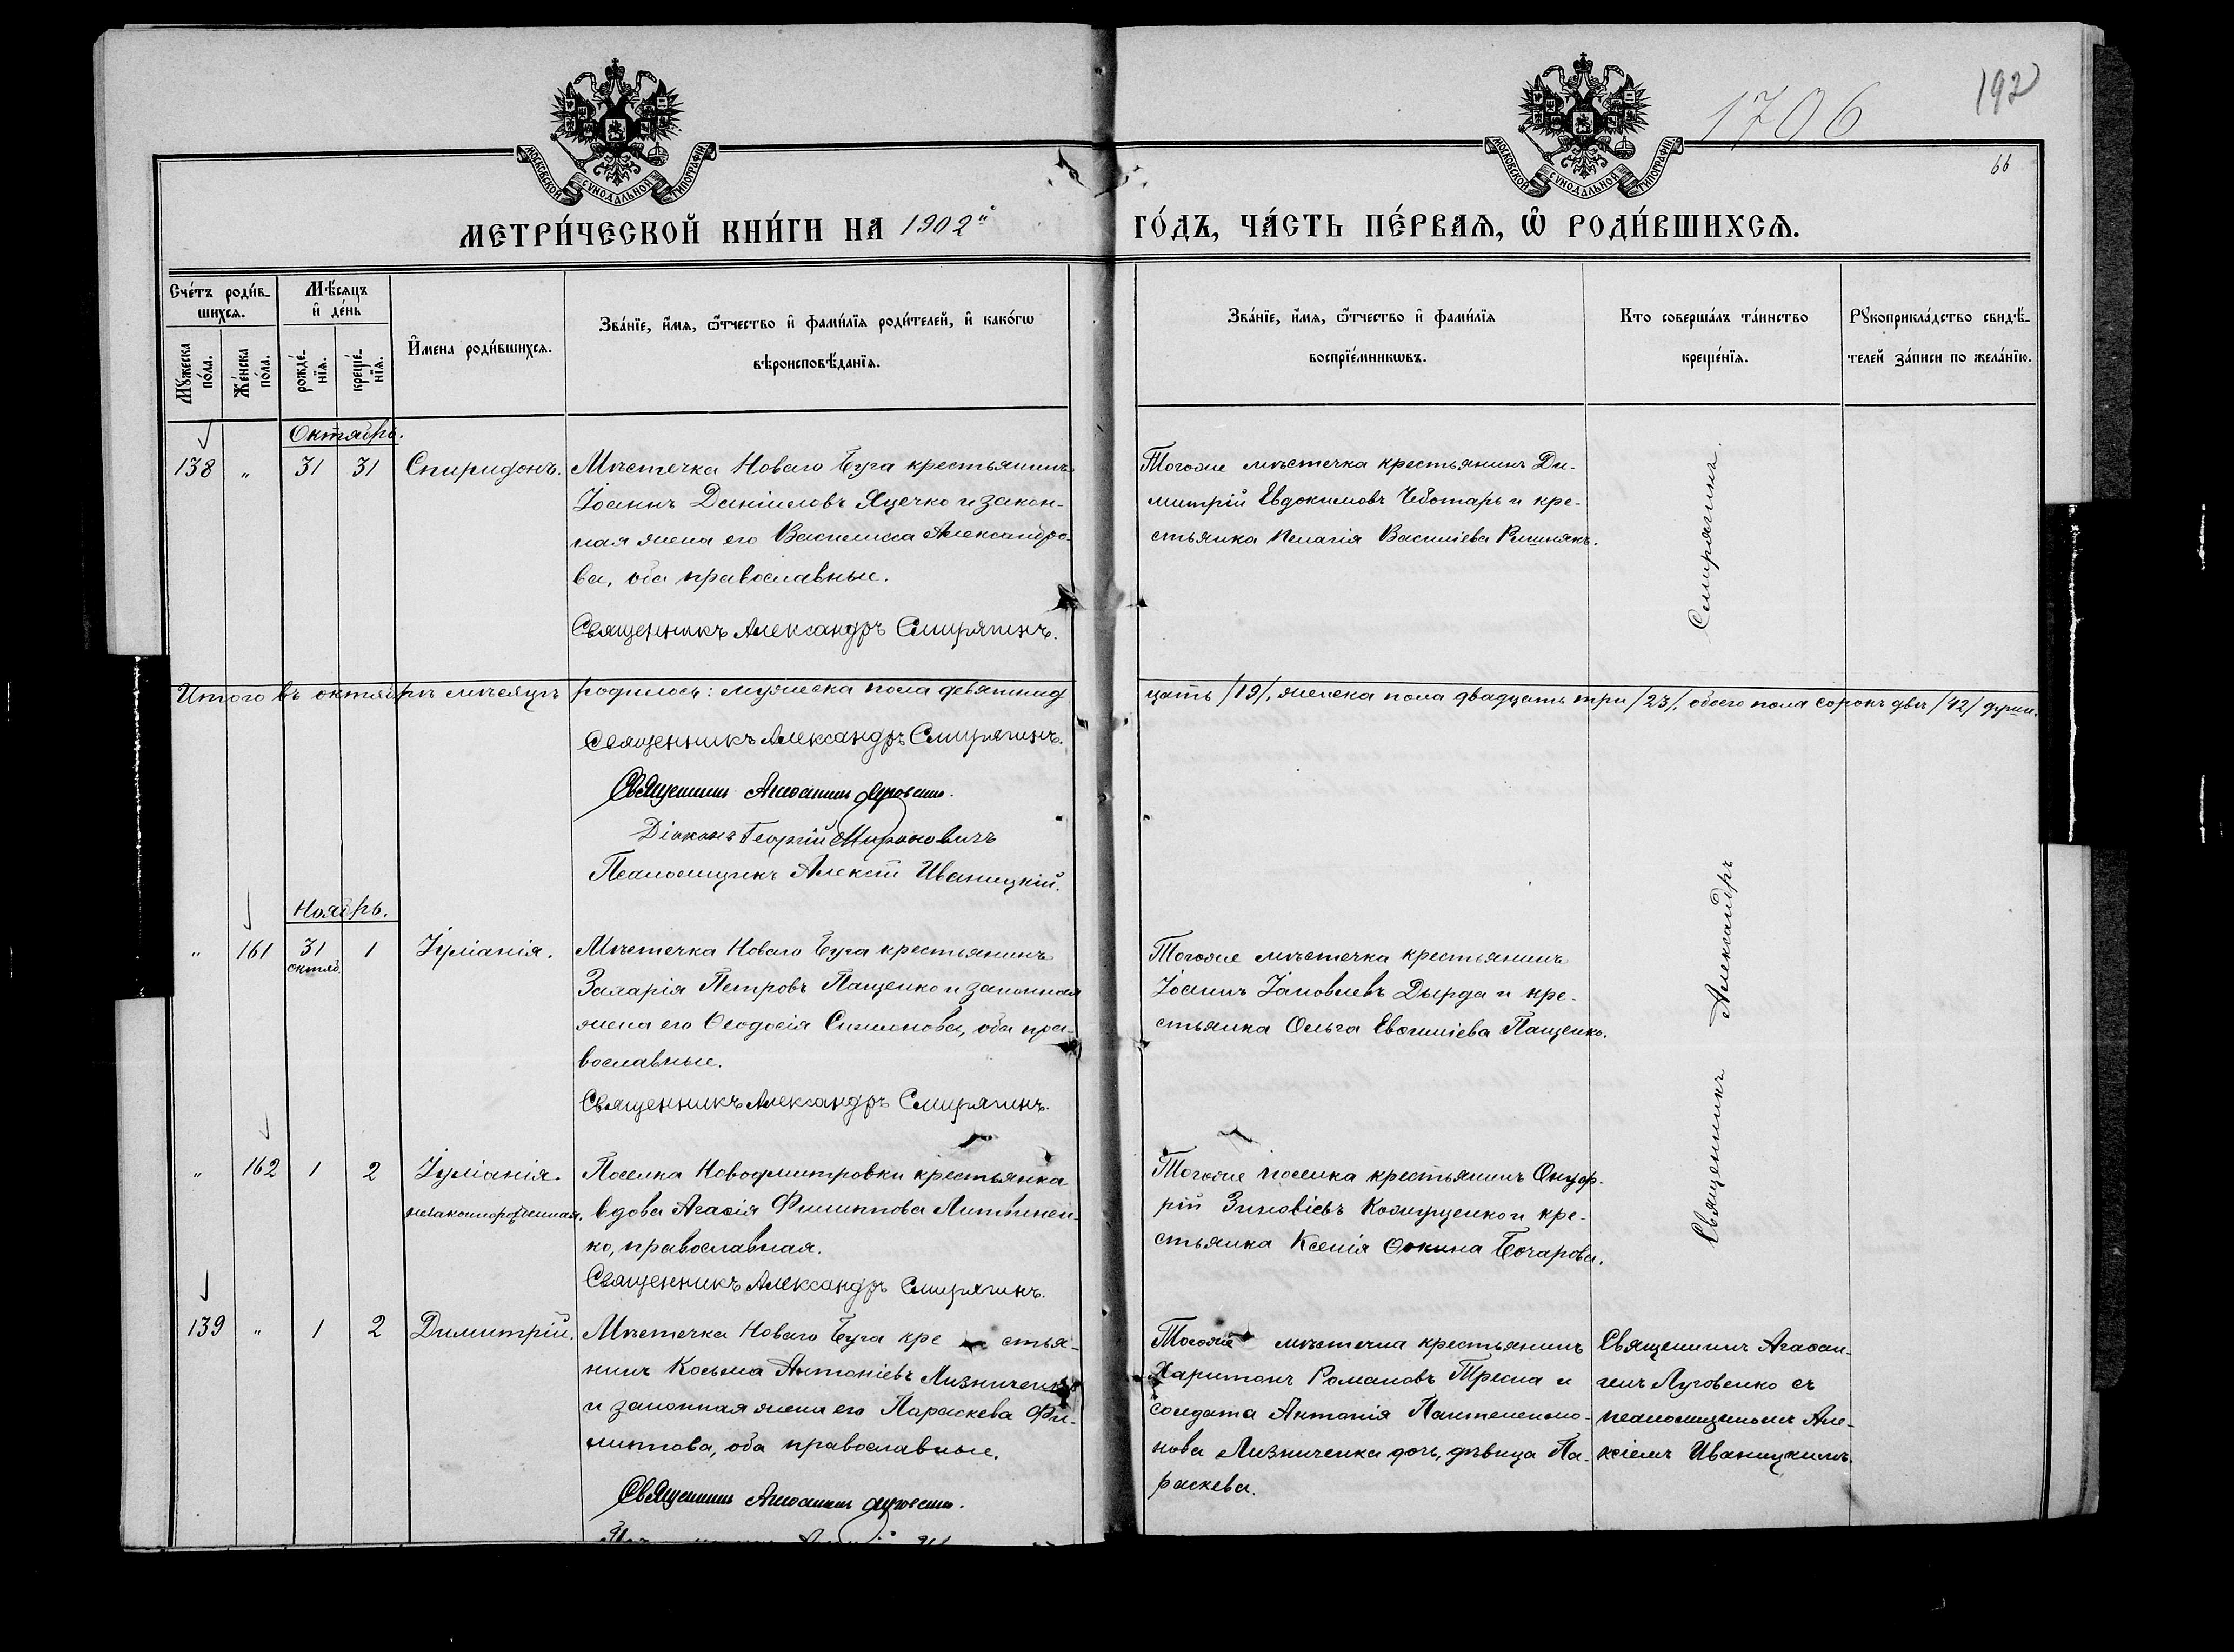 1706
192
66
МОСКОВСКОЙ СѴНОДАЛЬНОЙ ТИПОГРАФІИ
МОСКОВСКОЙ СѴНОДАЛЬНОЙ ТИПОГРАФІИ
МЕТРИ́ЧЕСКОЙ КНИ́ГИ НА 1902й ГО́ДЪ, ЧА́СТЬ ПЕ́РВАЯ, Ѡ҆ РОДИ́ВШИХСЯ.
Сче́тъ роди́в-
шихся.
Мѣ́сяцъ
и҆ де́нь
Мꙋ́жеска
по́ла.
Же́нска
по́ла.
рожде́-
нїя.
креще́-
нїя.
И҆мена роди́вшихся.
Зва́нїе, и҆́мя, ѻ҆́тчество и҆ фами́лїя роди́телей, и҆ како́гѡ
вѣроисповѣ́данїя.
Зва́нїе, и҆́мя, ѻ҆́тчество и҆ фами́лїя
воспрїе́мникѡвъ.
Кто соверша́лъ та́инство
креще́нїя.
Рꙋкоприкла́дство свидѣ́-
телей за́писи по жела́нїю.
Октябрь.
138 " 31 31 Спиридонъ. Мѣстечка Новаго Буга крестьянинъ
Іоаннъ Даніиловъ Яцечко и закон-
ная жена его Василисса Александро-
ва, оба православные.
Священникъ Александръ Смирягинъ.
Тогоже мѣстечка крестьянинъ Ди-
митрій Евдокимовъ Чеботарь и кре-
стьянка Пелагія Василіева Ришнякъ.
Итого въ октябрѣ мѣсяцѣ родилось: мужеска пола девятнад
цать /19/, женска пола двадцать три /23/, обоего пола сорокъ двѣ /42/ души.
Священникъ Александръ Смирягинъ.
Священникъ Агаѳангелъ Луговенко.
Діаконъ Георгій Мироновичъ
Псаломщикъ Алексій Иваницкій.
Ноябрь.
" 161 31 октяб. 1 Іуліанія. Мѣстечка Новаго Буга крестьянинъ
Захарія Петровъ Пащенко и законная
жена его Ѳеодосія Симонова, оба пра-
вославные.
Священникъ Александръ Смирягинъ.
Тогоже мѣстечка крестьянинъ
Іоаннъ Іаковлевъ Дырда и кре-
стьянка Ольга Евфиміева Пащенко.
" 162 1 2 Іуліанія.
незаконнорожденная.
Поселка Новодмитровки крестьянка
вдова Агафія Филиппова Литвинен-
ко, православная.
Священникъ Александръ Смирягинъ.
Тогоже поселка крестьянинъ Онуф-
рій Зиновіевъ Кожущенко и кре-
стьянка Ксенія Ѳокина Бочарова.
Священникъ Александръ Смирягинъ.
139 " 1 2 Димитрій. Мѣстечка Новаго Буга кре стья-
нинъ Косьма Антоніевъ Лизниченко
и законная жена его Параскева Фи-
липпова, оба православные.
Священникъ Агаѳангелъ Луговенко.
Тогоже мѣстечка крестьянинъ
Харитонъ Романовъ Треспа и
солдата Антонія Пантелеимо-
нова Лизниченка дочь, дѣвица Па-
раскева.
Священникъ Агаѳан-
гелъ Луговенко съ
псаломщикомъ Але-
ксіемъ Иваницкимъ.